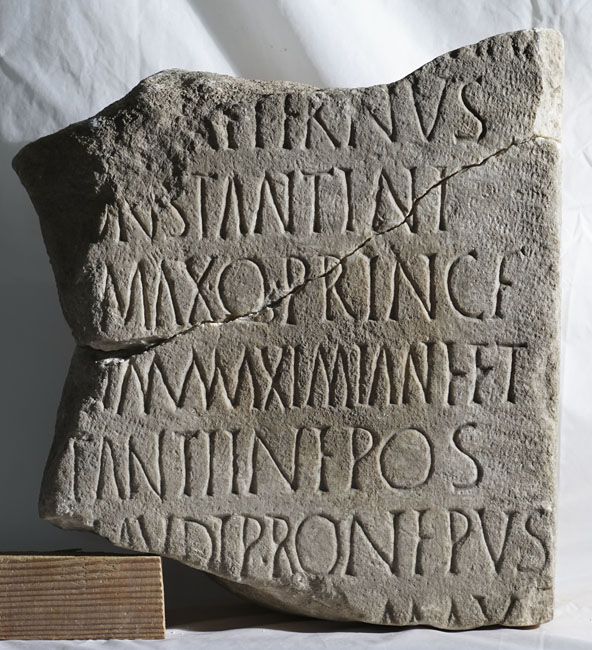 AETERNVS
NSTANTINI
MAXQPRINCF
VMMAXIMIANIET
TANTIINEPOS
AVDIPRONEPVS